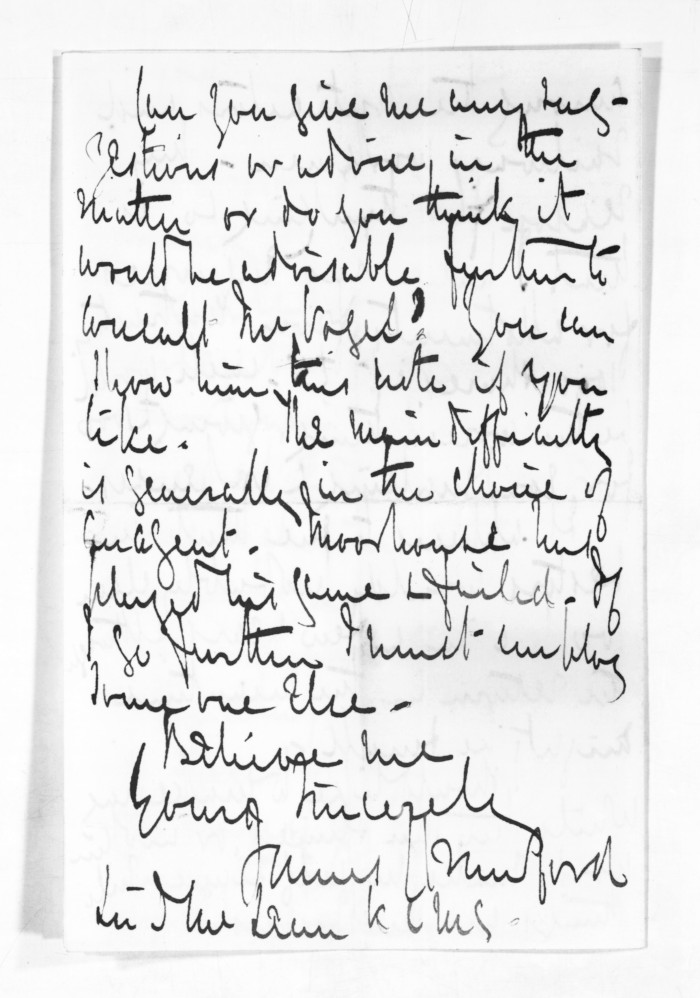 Can you give me any sug-
gestions or advice, in the
matter or do you think it
would be advisable further to
consult Mr Vogel? You can
show him this note if you
like. The main difficulty
is generally in the choice of
an agent. Moorhouse has
played his game & failed. If
I go further I must employ
some one else.
Believe me
Yours Sincerely
James Crawford
Sir D McLean K C M G.